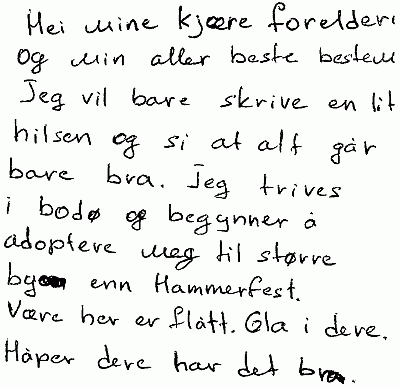 Hei mine kjære forelder
og min aller beste bestem
Jeg vil bare skrive en lit
hilsen og si at alt går
bare bra. Jeg trives
i bodø og begynner å
adoptere meg til større
by enn Hammerfest.
Være her er flått. Gla i dere.
Håper dere har det bra.